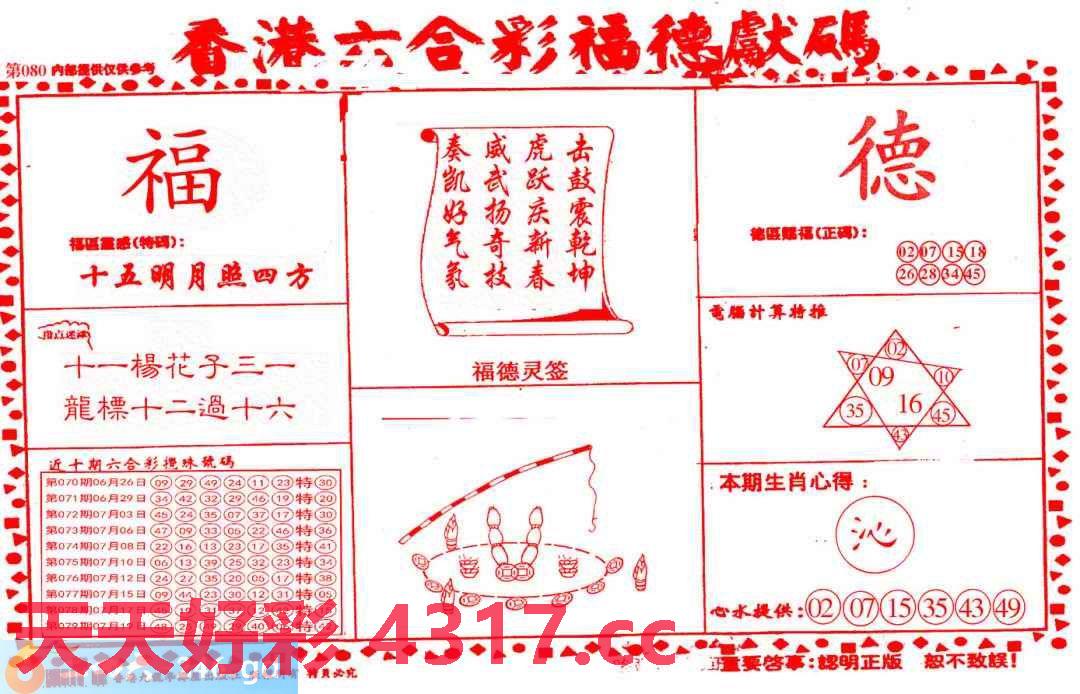 香港六合彩福德獻碼
第080 內部提供仅供参考
福
福區靈感(特碼):
十五明月照四方
十一楊花子三一
龍標十二過十六
近十期六合彩攪珠號碼
第070期06月26日 09 29 49 24 11 23 特 30
第071期06月29日 34 42 32 29 46 19 特 20
第072期07月03日 45 24 35 07 37 17 特 30
第073期07月06日 47 09 33 05 22 46 特 36
第074期07月08日 22 16 13 23 17 35 特 41
第075期07月10日 06 13 39 25 32 23 特 34
第076期07月12日 24 27 35 20 05 17 特 38
第077期07月15日 09 44 23 30 12 31 特 05
第078期07月17日
第079期07月19日
击鼓震乾坤
虎跃庆新春
威武扬奇技
奏凯好气氛
福德灵签
德
德區賜福(正碼):
02 07 15 18
26 28 34 45
電腦計算特推
02
07 09 10
16
35 45
43
本期生肖心得:
沁
心水提供: 02 07 15 35 43 49
天天好彩 4317.cc
重要啓事:認明正版 恕不致誤!